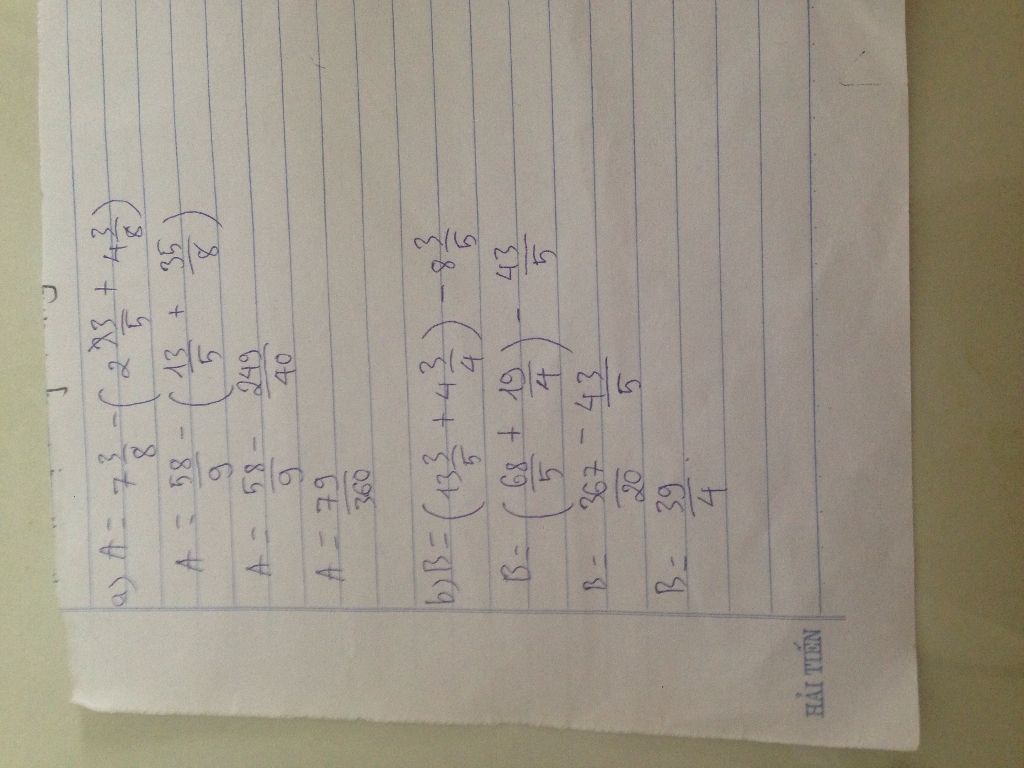 a) A = 7 3/8 - (2 3/5 + 4 3/8)
A = 58/9 - (13/5 + 35/8)
A = 58/9 - 249/40
A = 79/360
b) B = (13 3/5 + 4 3/4) - 8 3/5
B = (68/5 + 19/4) - 43/5
B = 367/20 - 43/5
B = 39/4
HẢI TIẾN